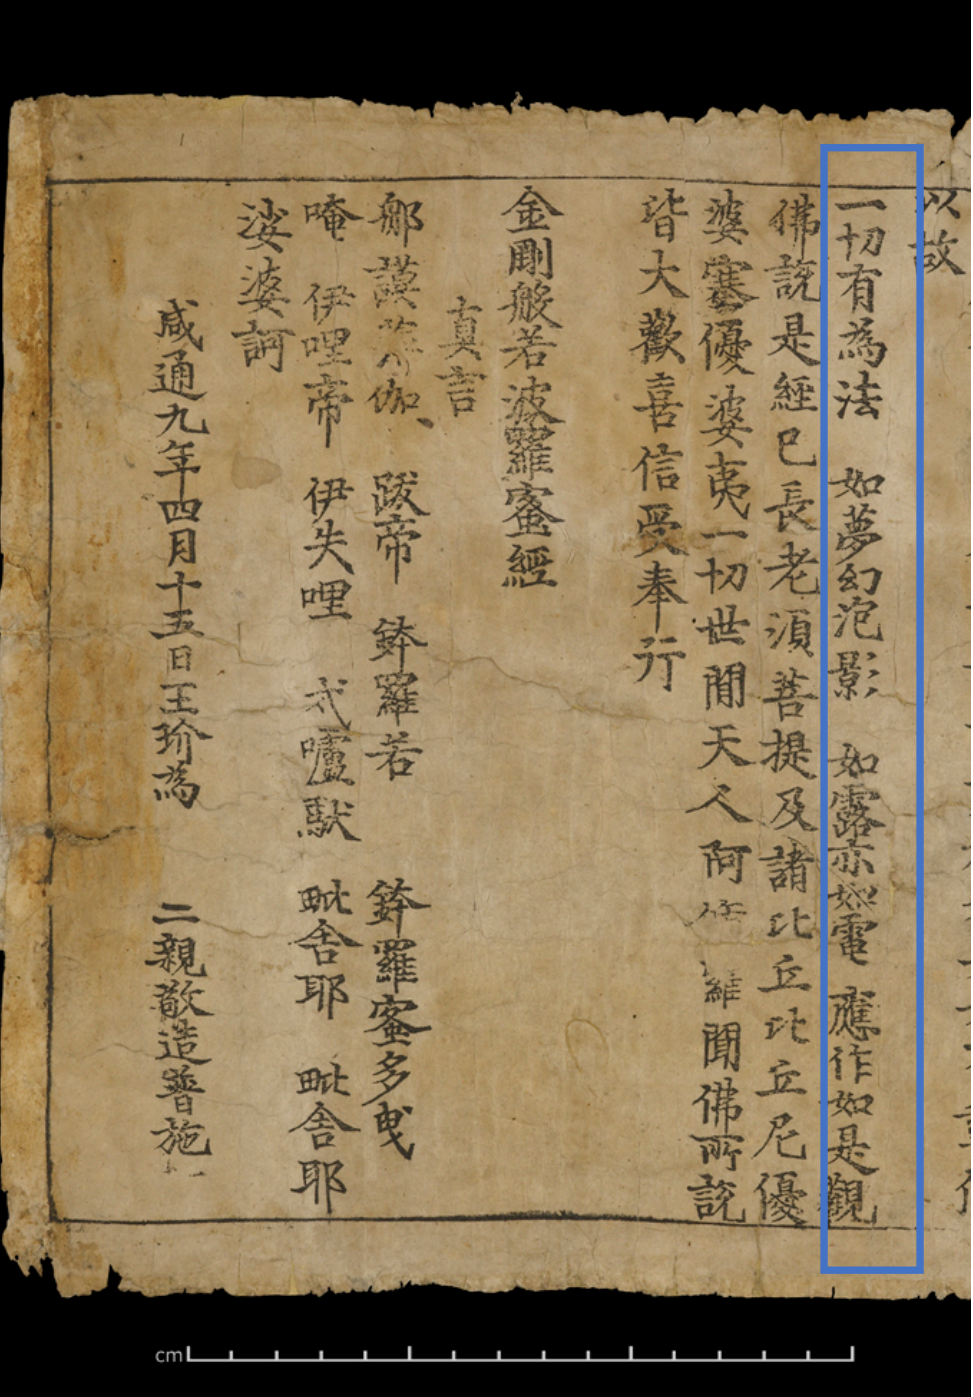 以故
一切有為法 如夢幻泡影 如露亦如電 應作如是觀
佛說是經已長老須菩提及諸比丘比丘尼優
婆塞優婆夷一切世間天人阿修羅聞佛所說
皆大歡喜信受奉行
金剛般若波羅蜜經
真言
那謨薄伽 跋帝 鉢羅若 鉢羅蜜多曳
唵 伊哩帝 伊失哩 式嚧馱 毗舍耶 毗舍耶
娑婆訶
咸通九年四月十五日王玠為 二親敬造普施
cm